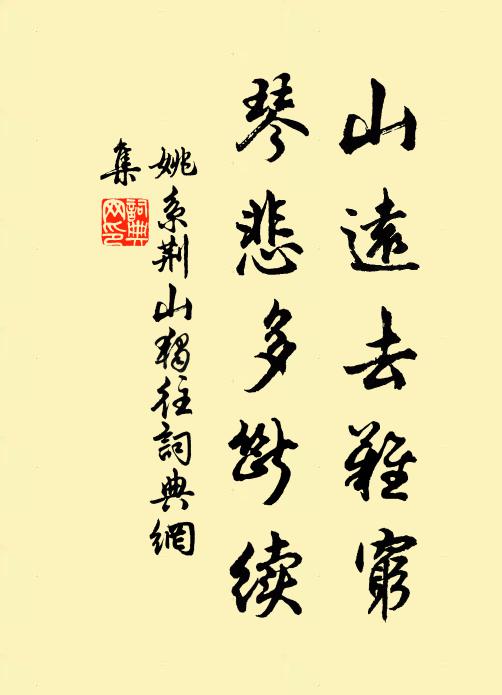 山遠去難窮
琴悲多斷續
姚系荆山獨往詞典網
集
詞典
网印